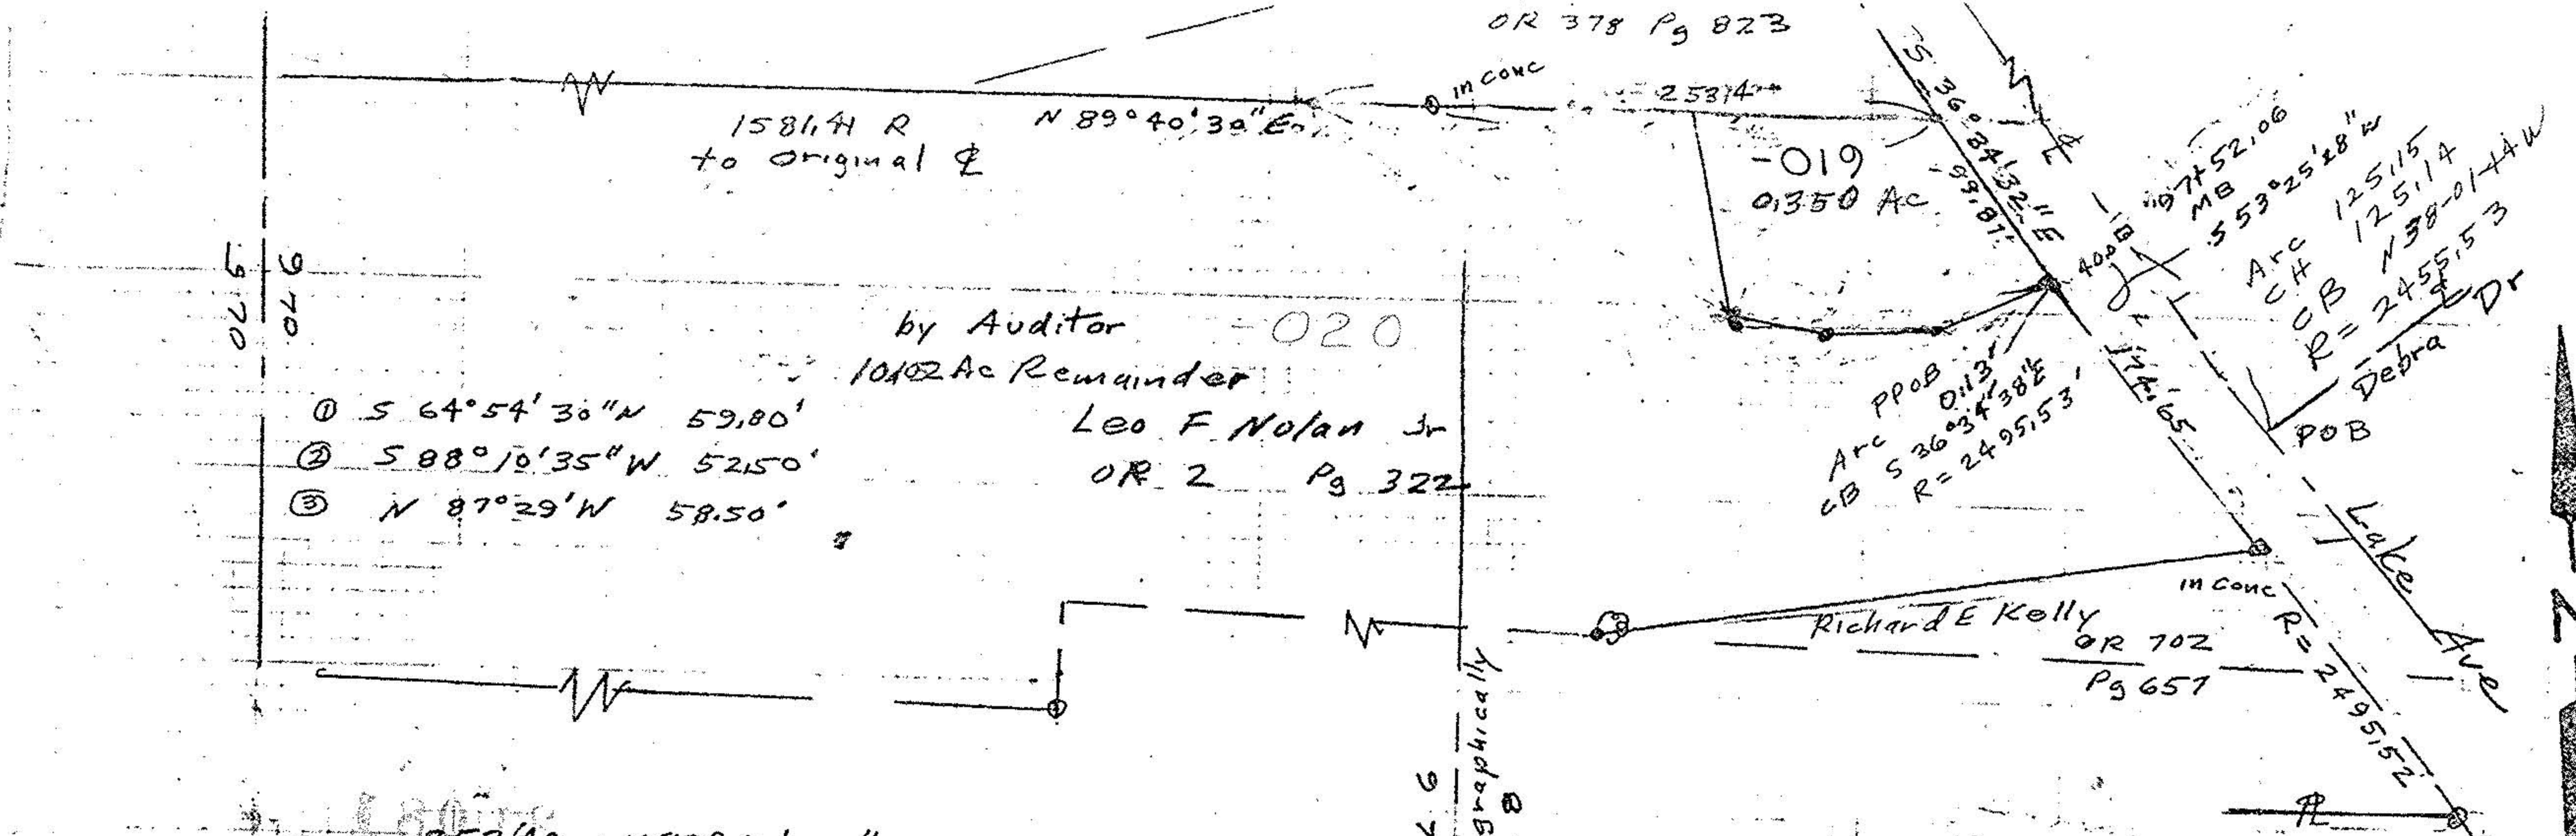 OR 378 Pg 823
in conc
253.14
1581.41 R
to original ℄
N 89°40'30"E
-019
0.350 Ac
S 36°34'32"E
99.87'
97+52.06
MB
S 53°25'28"W
40.0
Arc 125.15
CH 125.14
CB N38-01-44W
R= 2455.53
Debra Dr
POB
5 6
070 070
by Auditor
-020
10.102 Ac Remainder
Leo F Nolan Jr
OR 2 Pg 322
① S 64°54'30"W 59.80'
② S 88°10'35"W 52.50'
③ N 87°29'W 58.50'
PPOB
Arc 0.13'
CB S 36°34'38"E
R= 2495.53'
174.65
Lake Ave
in conc
Richard E Kelly
OR 702
Pg 657
R= 2495.52
graphically
6
8
℄